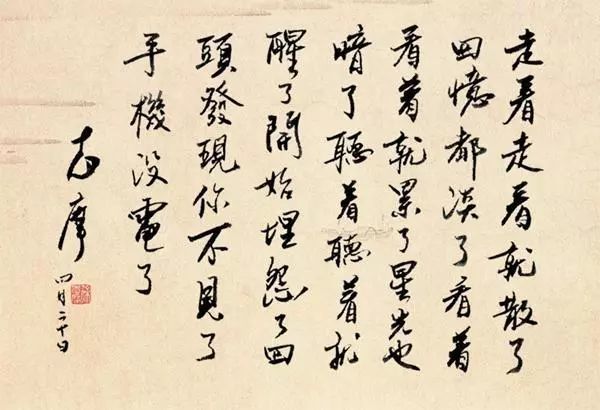 走着走着就散了
回憶都淡了看着
看着就累了星光也
暗了聽着聽着就
醒了開始埋怨了回
頭發現你不見了
手機没電了
志摩
四月二十日